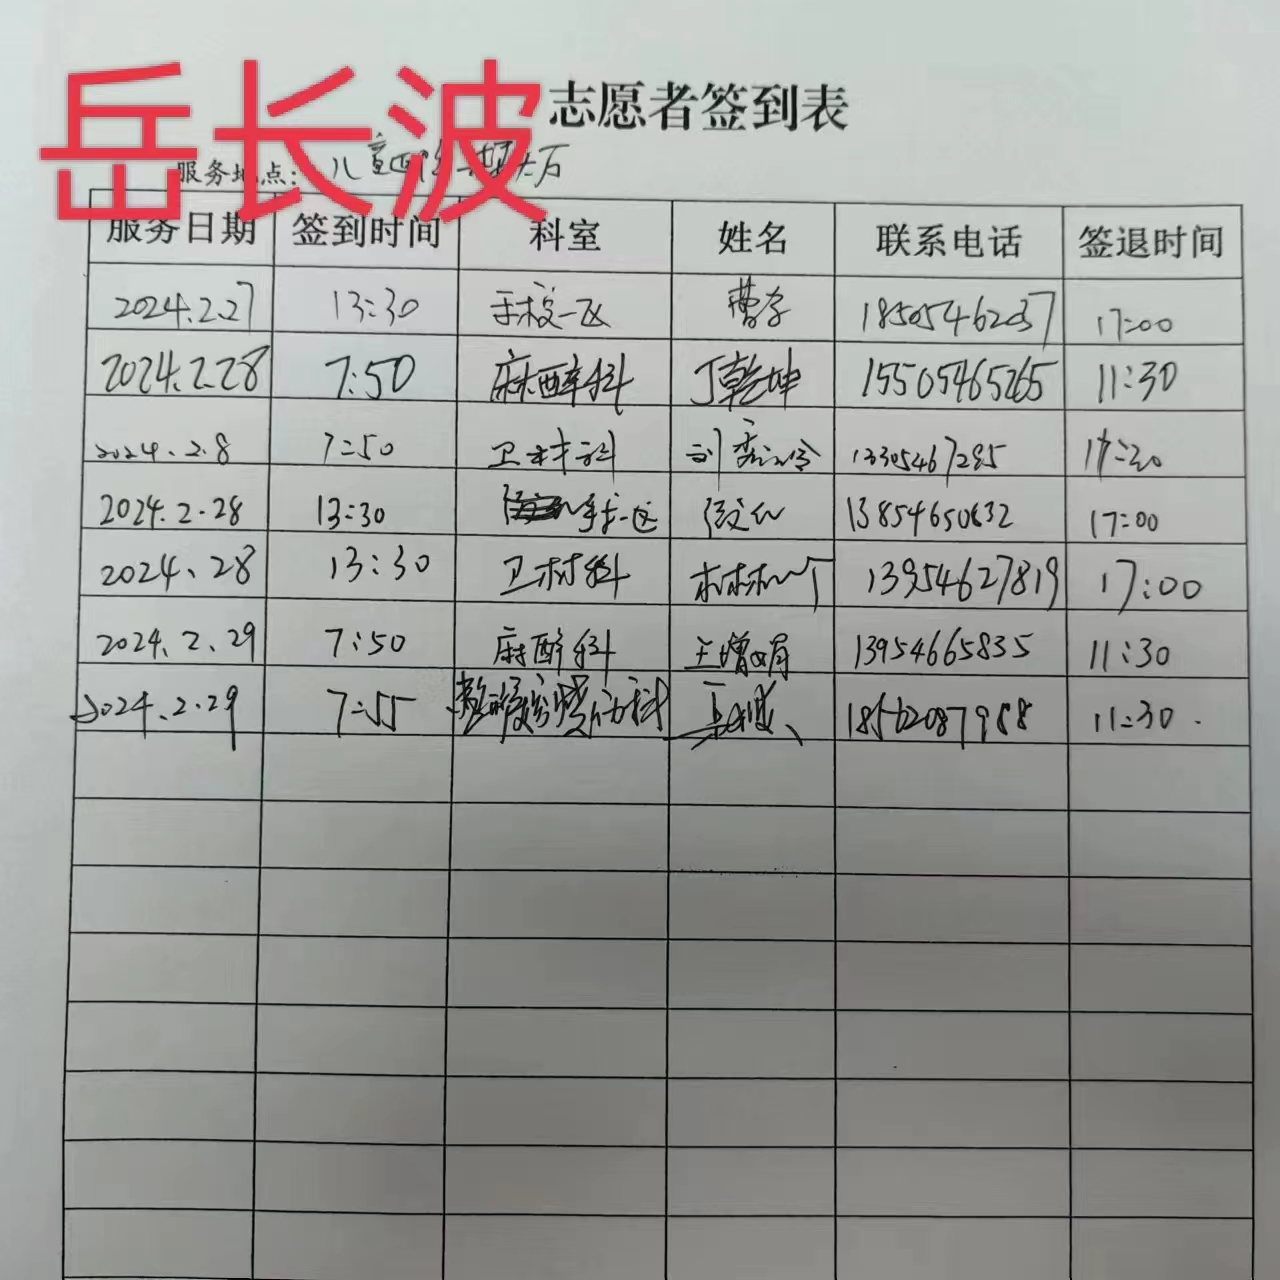 岳长波
志愿者签到表
服务地点: 儿童
服务日期 签到时间 科室 姓名 联系电话 签退时间
2024.2.27 13:30 手术一区 曹 18505462037 17:00
2024.2.28 7:50 麻醉科 丁乾坤 15505465265 11:30
2024.2.8 7:50 卫材科 刘 13305467285 11:30
2024.2.28 13:30 手术一区 13854650632 17:00
2024.28 13:30 卫材科 13954627819 17:00
2024.2.29 7:50 麻醉科 王增娟 13954665835 11:30
2024.2.29 7:55 18562087988 11:30.